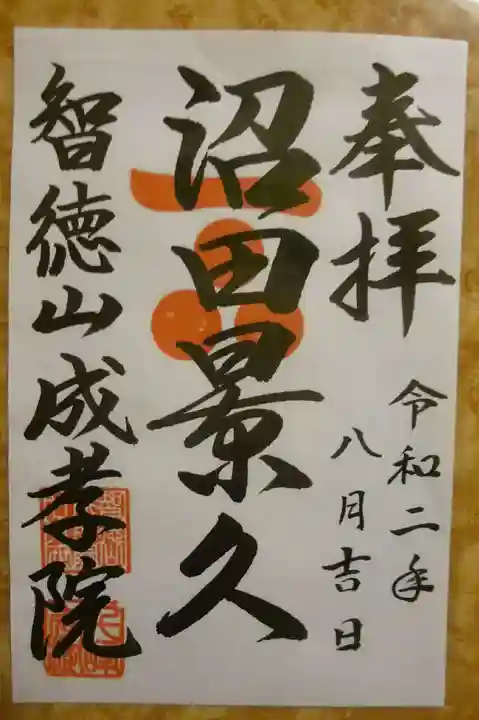 奉拝
令和二年
八月吉日
沼田景久
智徳山成孝院